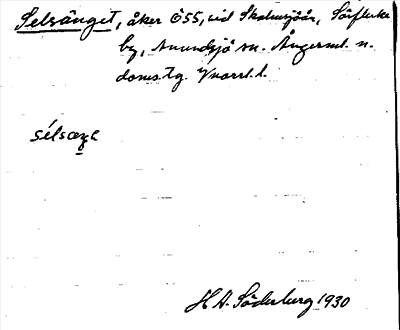 Selsänget, åker Ö55, vid Skalmsjöån, Sörflärke
by, Anundsjö sn. Ångerml. n.
doms.tg. Vnorrl. l.
sélsæŋe
H A. Söderberg 1930